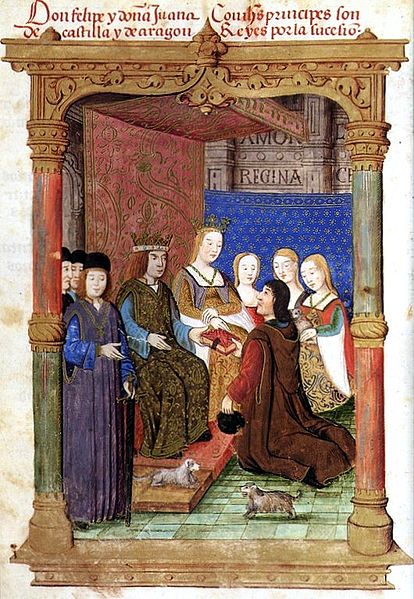 Don felipe y doña Juana
de castilla y de aragon
principes son
Reyes por la sucesio
AMOR
REGINA